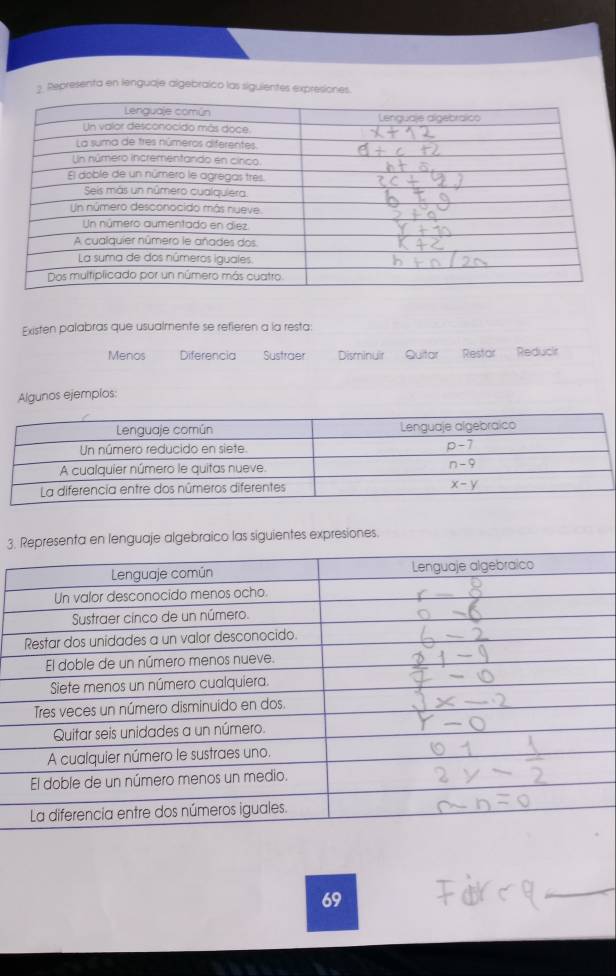 2. Representa en lenguaje algebraico las siguientes expresiones.
Lenguaje común Lenguaje algebraico
Un valor desconocido más doce. x+12
La suma de tres números diferentes.
Un número incrementando en cinco. n+5
El doble de un número le agregas tres.
Seis más un número cualquiera.
Un número desconocido más nueve.
Un número aumentado en diez.
A cualquier número le añades dos. K+2
La suma de dos números iguales. n+n/2n
Dos multiplicado por un número más cuatro.
Existen palabras que usualmente se refieren a la resta:
Menos Diferencia Sustraer Disminuir Quitar Restar Reducir
Algunos ejemplos:
Lenguaje común Lenguaje algebraico
Un número reducido en siete. p-7
A cualquier número le quitas nueve. n-9
La diferencia entre dos números diferentes x-y
3. Representa en lenguaje algebraico las siguientes expresiones.
Lenguaje común Lenguaje algebraico
Un valor desconocido menos ocho. r-8
Sustraer cinco de un número.
Restar dos unidades a un valor desconocido. 6-2
El doble de un número menos nueve.
Siete menos un número cualquiera. 7-0
Tres veces un número disminuido en dos. 3x-2
Quitar seis unidades a un número. Y-0
A cualquier número le sustraes uno.
El doble de un número menos un medio. 2y-1/2
La diferencia entre dos números iguales. n=0
69